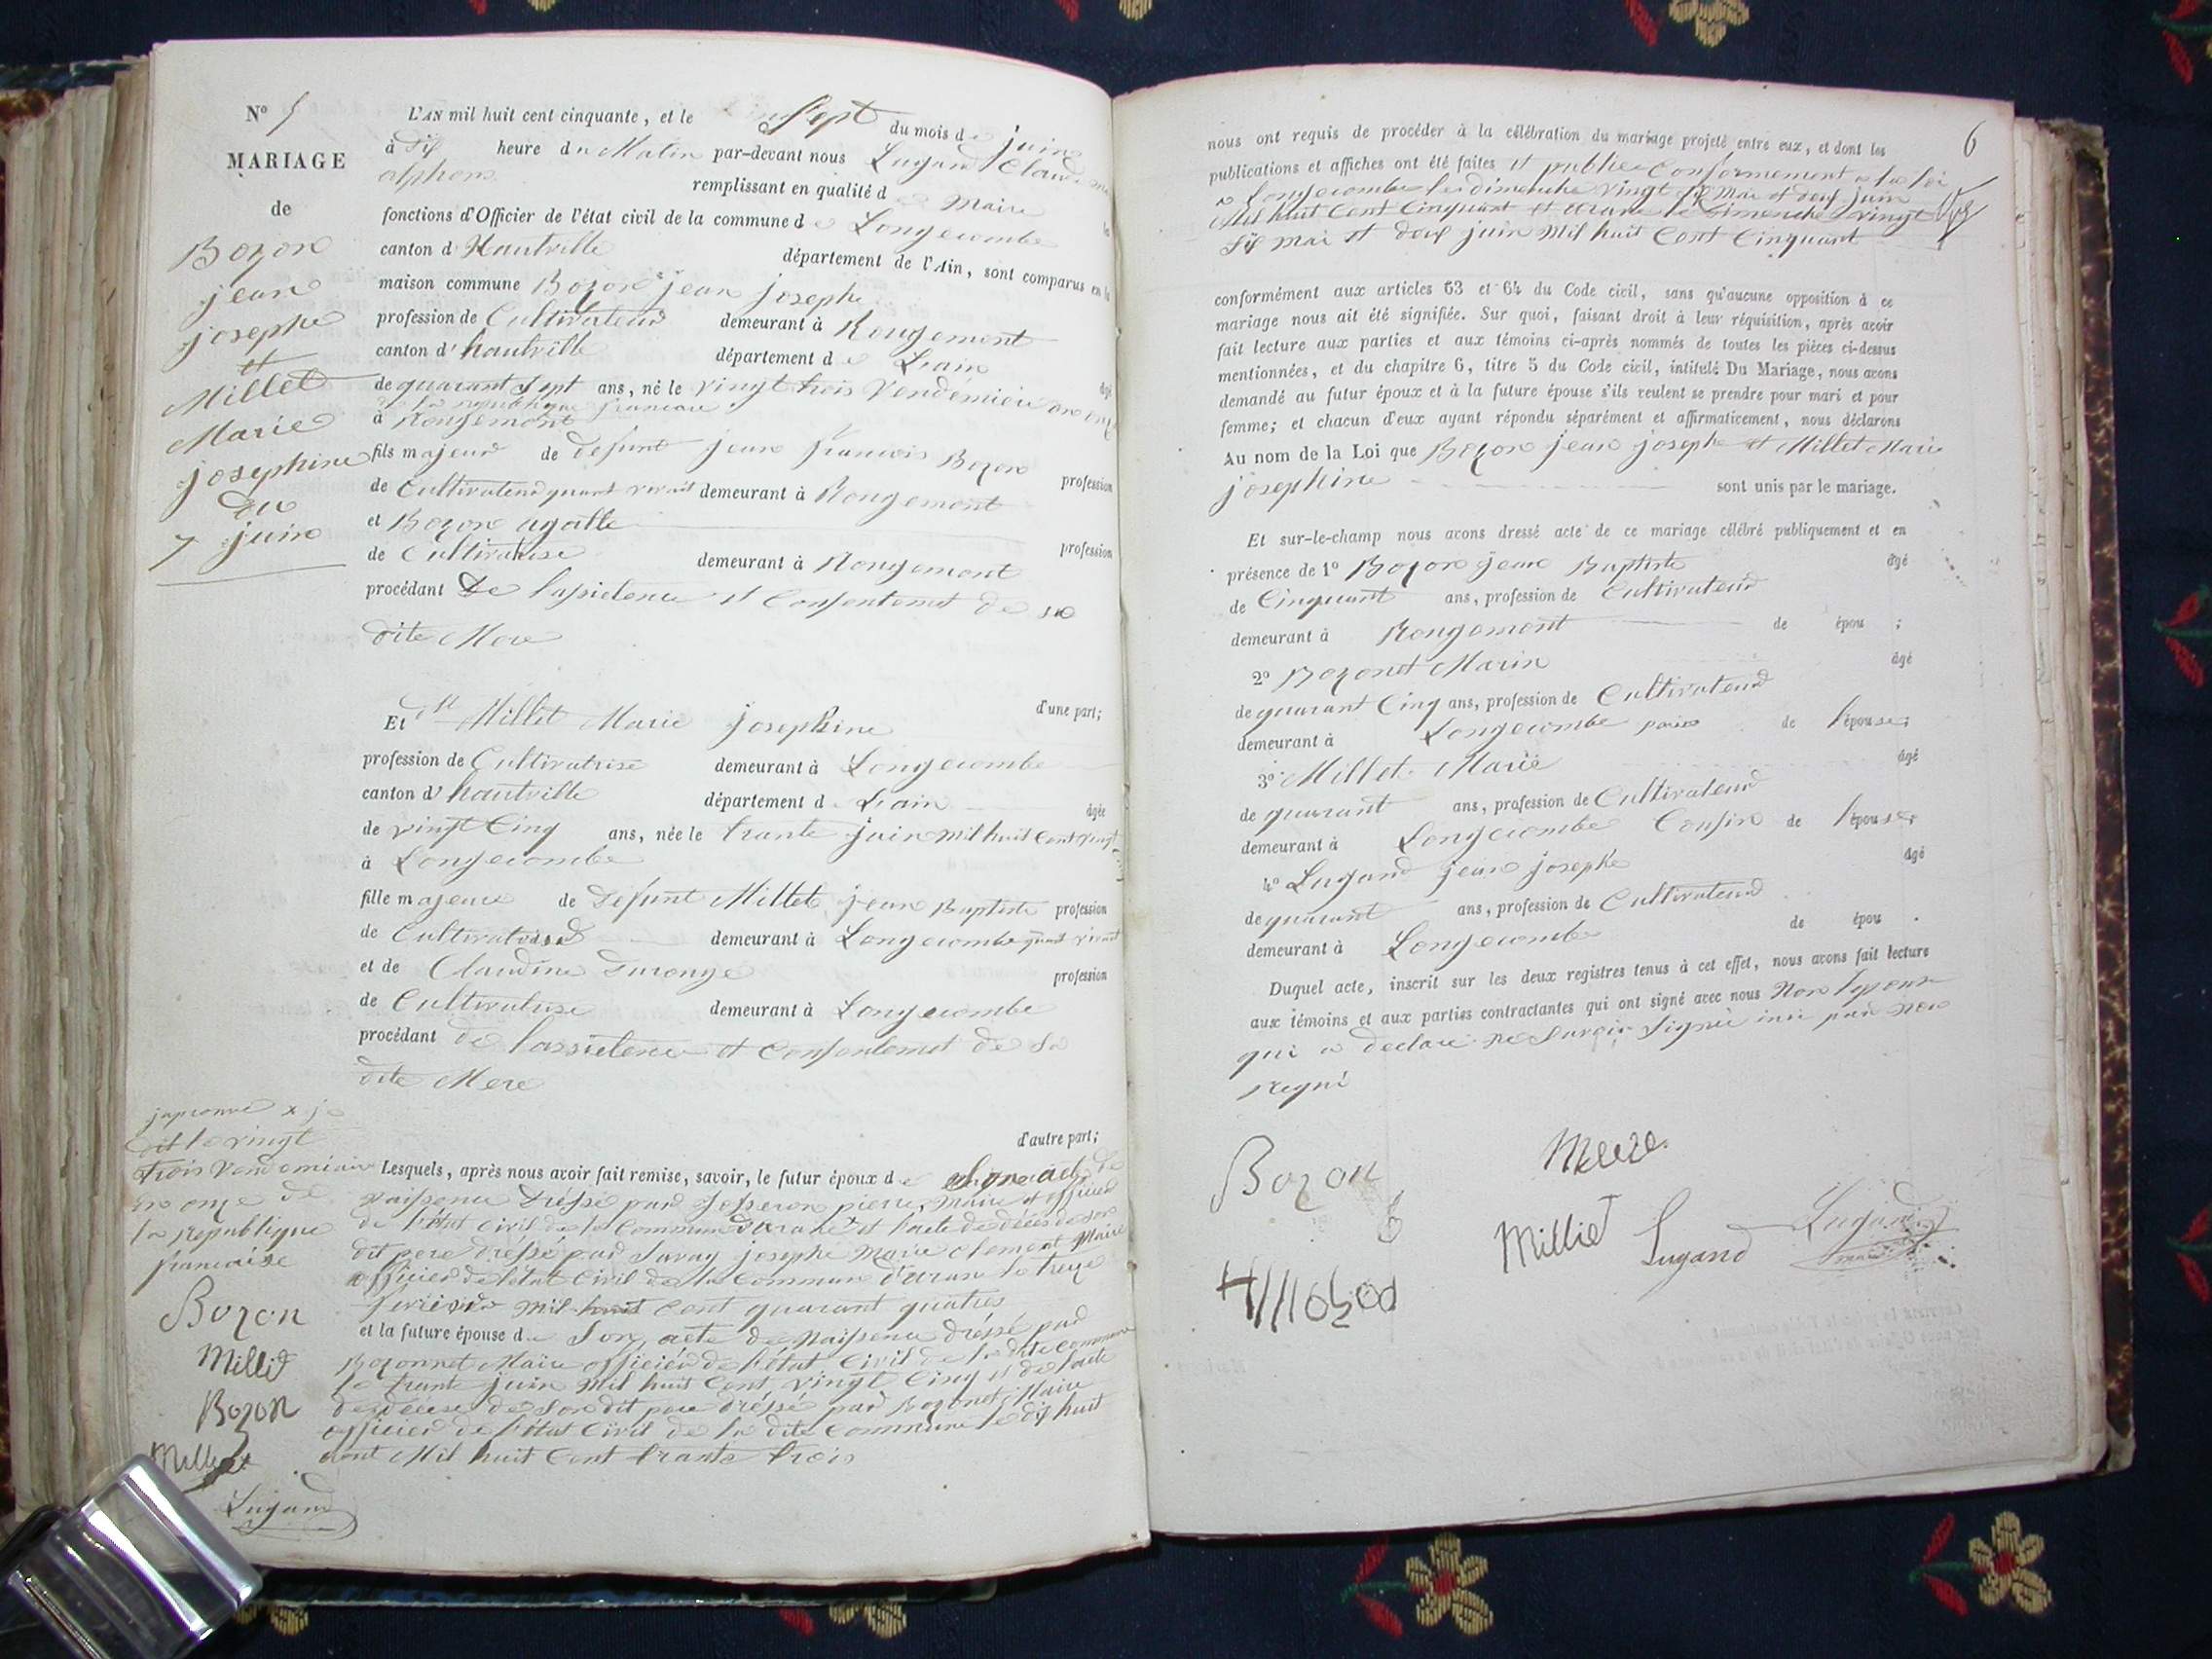 N° 5
MARIAGE
de
Bozon
jean
josephe
et
Millet
Marie
josephine
du
7 juin
L'AN mil huit cent cinquante, et le sept du mois de juin
à dix heure du Matin par-devant nous Lugand Claude
alphons remplissant en qualité de Maire
fonctions d'Officier de l'état civil de la commune de Longecombe
canton d'hautville département de l'Ain, sont comparus en la
maison commune Bozon jean josephe
profession de Cultivateur demeurant à Rougemont
canton d'hautville département de Lain
de quarant sept ans, né le vingt trois Vendémiaire an onze
de la republique francaise
à Rougemont
fils majeur de defunt jean francois Bozon profession
de Cultivateur quant vivait demeurant à Rougemont
et Bozon agathe profession
de Cultivatrise demeurant à Rougemont
procédant De lassistence et Consentemet de sa
dite Mere
d'une part;
Et Millet Marie josephine
profession de Cultivatrise demeurant à Longecombe
canton d'hautville département de Lain âgée
de vingt Cinq ans, née le trante juin mil huit Cent vingt cinq
à Longecombe
fille majeure de Defunt Millet jean Baptiste profession
de Cultivateur demeurant à Longecombe quant vivait
et de Claudine Duronge profession
de Cultivatrise demeurant à Longecombe
procédant de lassistence et Consentemet de sa
dite Mere
d'autre part;
Lesquels, après nous avoir fait remise, savoir, le futur époux de Son acte de
naissence dréssé par josseron pierre, Maire et officier
de l'état Civil de la Commune d'arane x et lacte de décès de son
dit pere dréssé par Savay josephe Marie clement Maire
officier de l'état Civil de la Commune d'aran le treze
mil huit Cent quarant quatre
et la future épouse de Son acte de Naissence dréssé par
Bozonnet Maire officier de l'état Civil de la dite Commune
le trante juin Mil huit Cent vingt Cinq et de lacte
de décese de son dit pere dréssé par Bozonet Maire
officier de l'état Civil de la dite Commune le dix huit
aout Mil huit Cent trante trois
japrouve x je
dit le vingt
trois Vendemiaire
an onze de
la republique
francaise
Bozon
Millet
Bozon
Millet
Lugand
6
nous ont requis de procéder à la célébration du mariage projeté entre eux, et dont les
publications et affiches ont été faites et publiée Conformement a la loi
a Longecombe les dimenche vingt six Mai et deux juin
Mil huit Cent Cinquant et arane le dimenche vingt
Six Mai et deux juin Mil huit Cent Cinquant
conformément aux articles 63 et 64 du Code civil, sans qu'aucune opposition à ce
mariage nous ait été signifiée. Sur quoi, faisant droit à leur réquisition, après avoir
fait lecture aux parties et aux témoins ci-après nommés de toutes les pièces ci-dessus
mentionnées, et du chapitre 6, titre 5 du Code civil, intitulé Du Mariage, nous avons
demandé au futur époux et à la future épouse s'ils veulent se prendre pour mari et pour
femme; et chacun d'eux ayant répondu séparément et affirmativement, nous déclarons
Au nom de la Loi que Bozon jean josephe et Millet Marie
josephine sont unis par le mariage.
Et sur-le-champ nous avons dressé acte de ce mariage célébré publiquement et en
présence de 1° Bozon jean Baptiste âgé
de Cinquant ans, profession de Cultivateur
demeurant à Rougemont de épou ;
2° Bozonet Marin âgé
de quarant Cinq ans, profession de Cultivateur
demeurant à Longecombe de l'épouse;
3° Millet Marie âgé
de quarant ans, profession de Cultivateur
demeurant à Longecombe Cousin de l'épouse;
4° Lugand jean josephe âgé
de quarant ans, profession de Cultivateur
demeurant à Longecombe de épou .
Duquel acte, inscrit sur les deux registres tenus à cet effet, nous avons fait lecture
aux témoins et aux parties contractantes qui ont signé avec nous Non lepouse
qui a déclaré ne savoir signée
requi
Bozon
Millet
Lugand
Lugand
Bozon